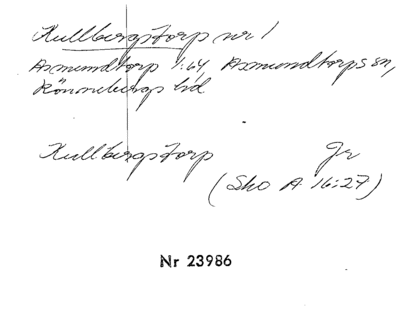 Kullbergstorp nr 1
Asmundtorp 1:64, Asmundtorps sn,
Rönnebergs hd
Kullbergstorp Gr
(Sko A 16:27)
Nr 23986